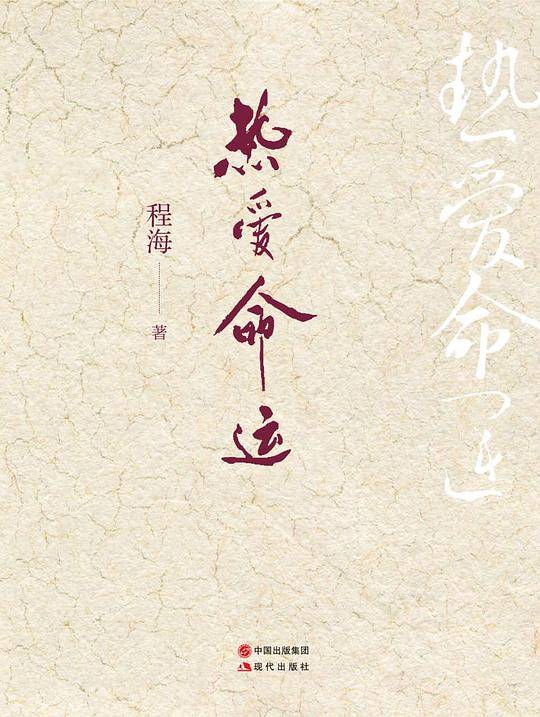 热爱命运
热爱命运
程海
著
中国出版集团
现代出版社